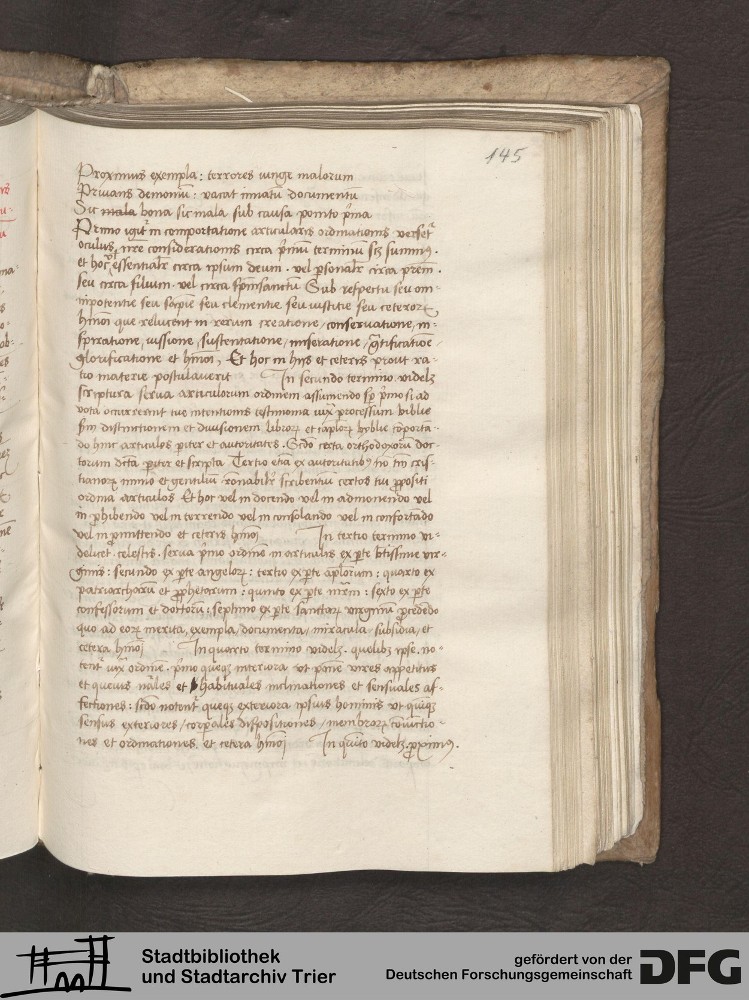 145
Proximus exempla: terrores iunge malorum
Priuans demoniu: vacat innatu documentu
Sic mala bona sic mala sub causa ponito pma
Primo igit in comportatione articularis ordinationis verset
oculus nre considerationis circa pmu terminu scz summu.
et hoc essentialr circa ipsum deum. vel psonalr circa prem.
seu circa filium. vel circa spmsanctu Sub respectu seu om-
nipotentie seu sapie seu clementie seu iustitie seu ceteror
hmoi que relucent in rerum creatione, conseruatione, in-
spiratione, sustentatione, miseratione, gratificatioe
glorificatione et hmoi, Et hoc in hijs et ceteris prout ra-
tio materie postulauerit In secundo termino videlz
scriptura serua articulorum ordinem assumendo sr pmo si ad
vota occurrerint tue intentionis testimonia iux processum biblie
scdm distinctionem et diuisionem libror et caplor byblie comporta-
do hinc articulos pariter et autoritates. Scdo certa orthodoxoru doc-
torum dicta pariter et scripta Tertio etia ex autoritatibus no tm cris-
tianor immo et gentiliu ronabilr scribentiu certos tui propositi
ordina articulos Et hoc vel in docendo vel in admonendo vel
in phibendo vel in terrendo vel in consolando vel in confortado
vel in pmittendo et ceteris hmoi In tertio termino vi-
delicet celestis. serua pmo ordine in articulis ex pte btissime vir-
ginis: secundo ex pte angelor: tertio ex pte aplorum: quarto ex
patriarcharu et prophetarum: quinto ex pte mrm: sexto ex pte
confessorum et doctoru: septimo ex pte sanctar virginu procededo
quo ad eor merita, exempla, documenta, miracula, subsidia, et
cetera hmoi In quarto termino videlz. quolibz ipse. no-
tent iux ordine. pmo queqz interiora vt pone vires appetitus
et queuis nales et habituales inclinationes et sensuales af-
fectiones: scdo notent queqz exteriora ipsius hominis vt quiqz
sensus exteriores, corpales dispositiones, membroru coniuctio-
nes et ordinationes. et cetera hmoi In quito videlz proximus.
Stadtbibliothek
und Stadtarchiv Trier
gefördert von der
Deutschen Forschungsgemeinschaft
DFG